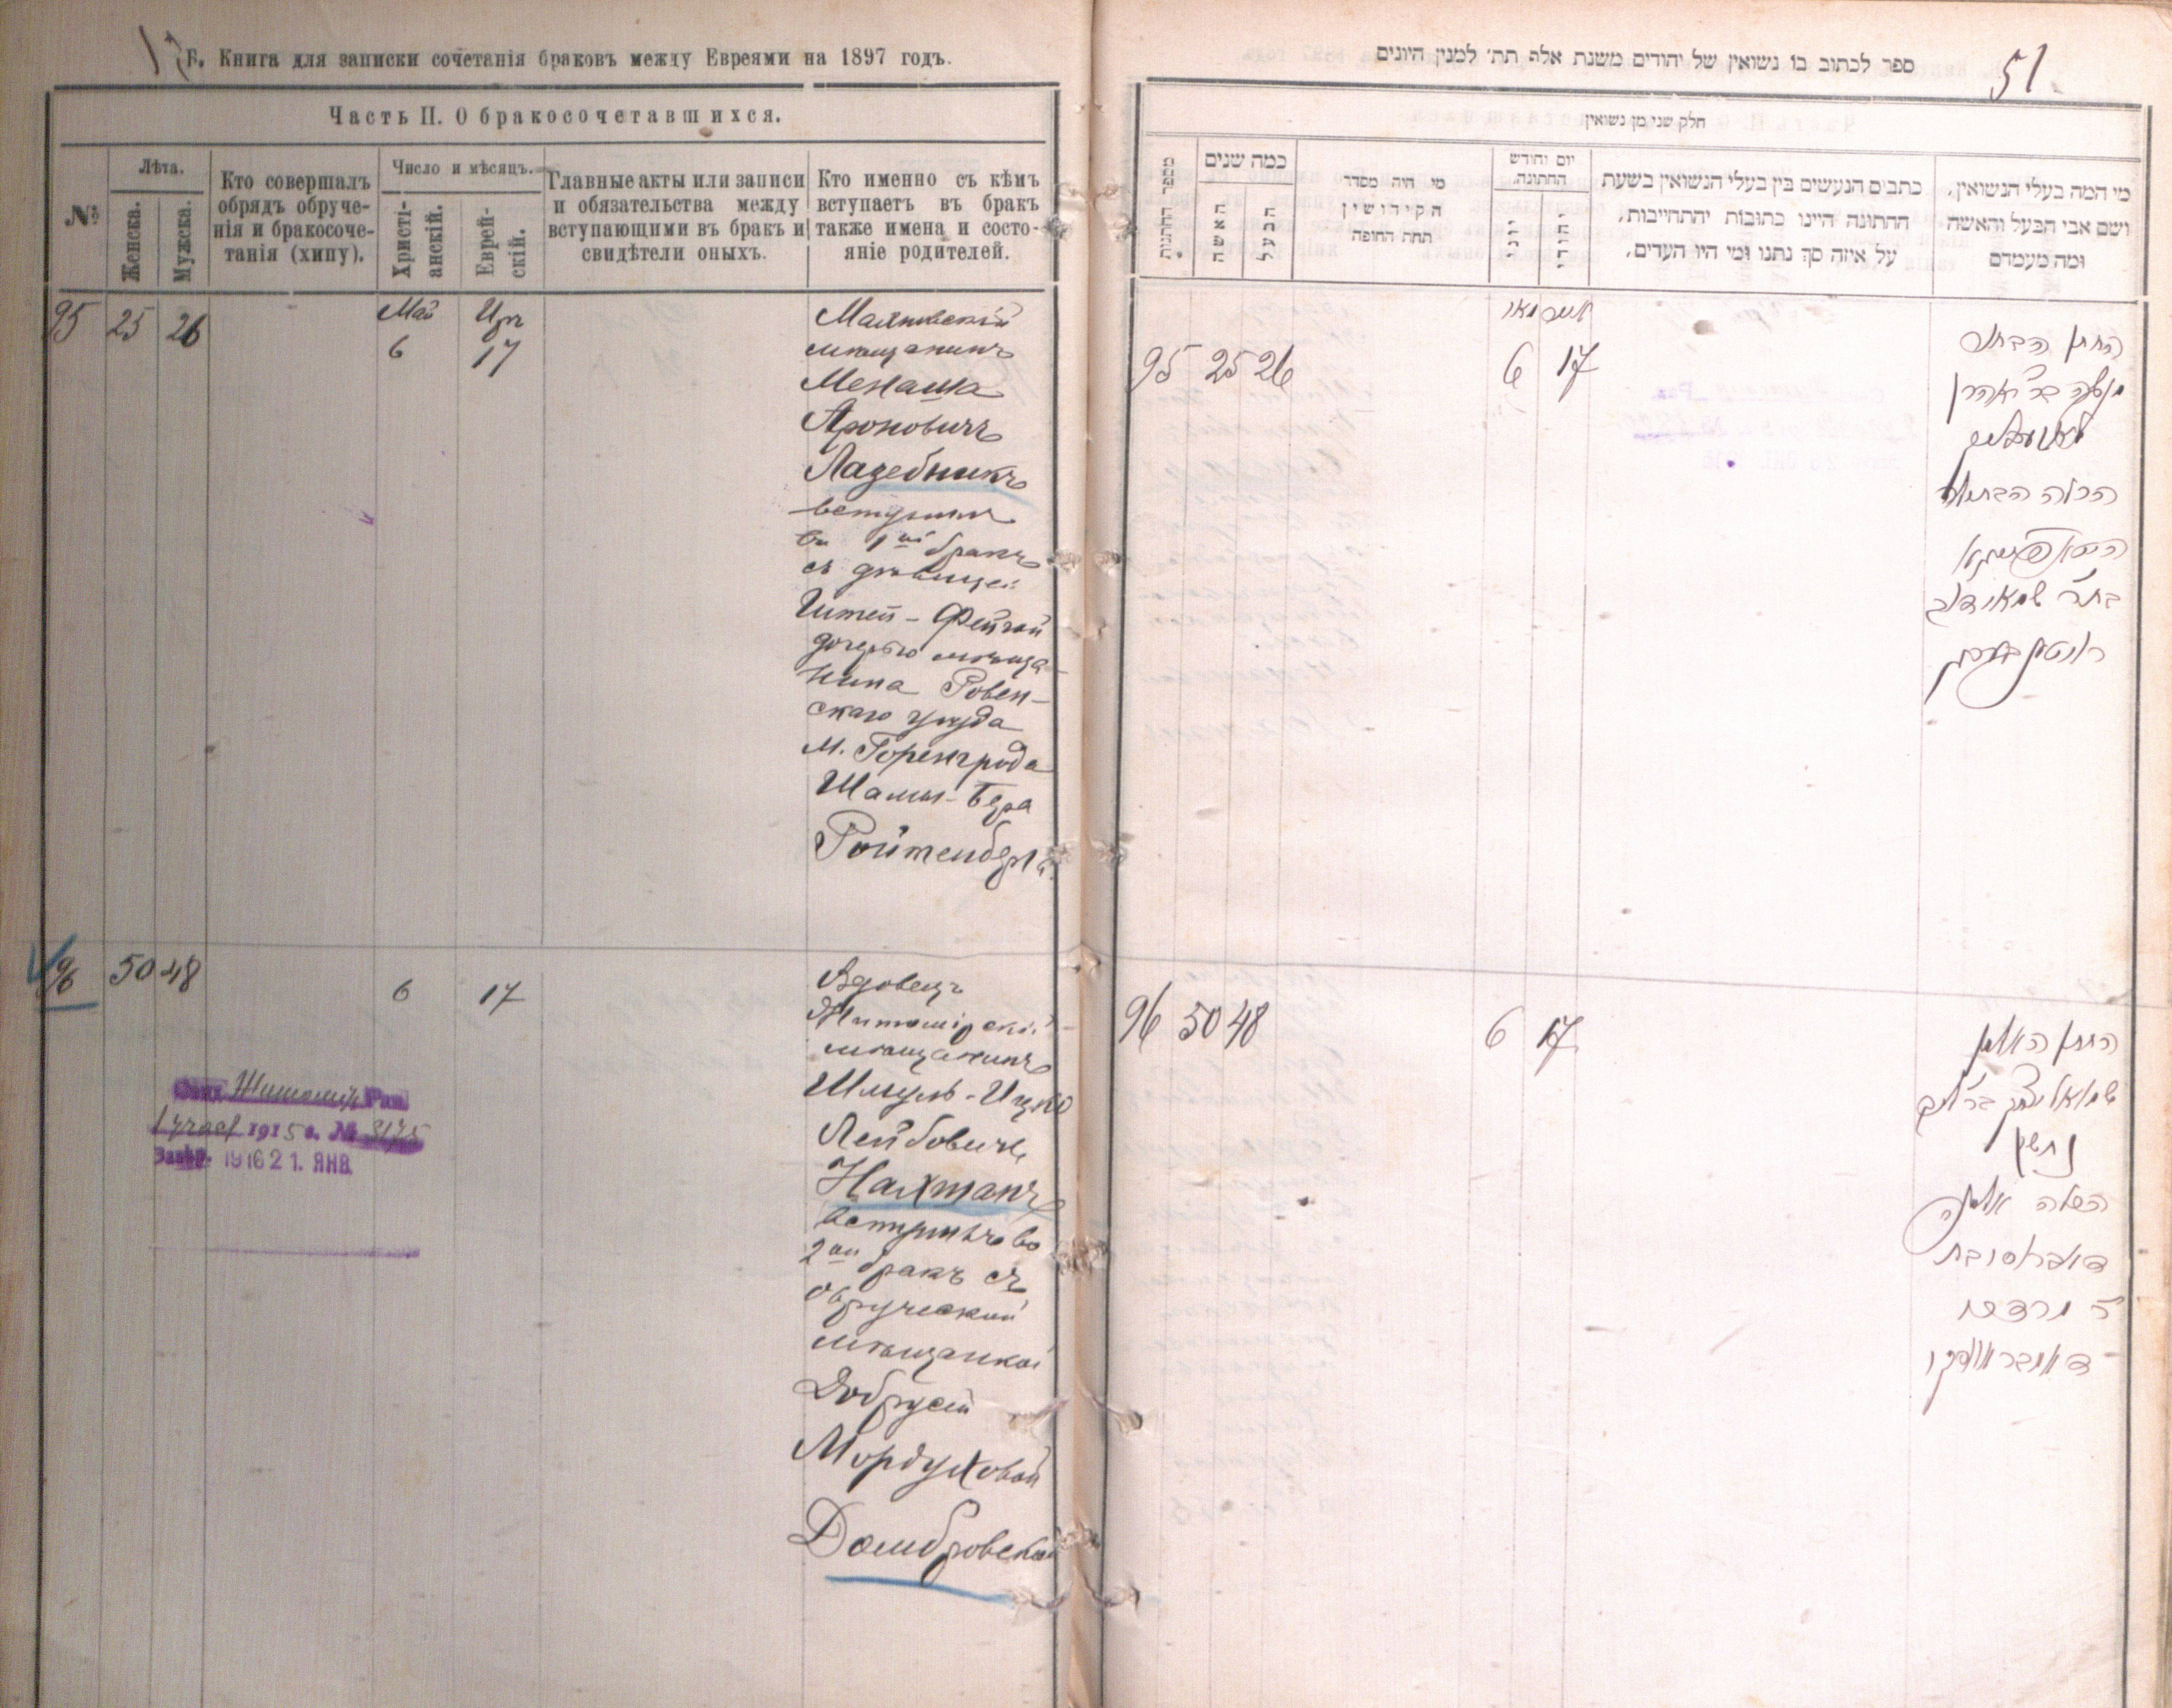 Б. Книга для записки сочетанія браковъ между Евреями на 1897 годъ.
Часть II. О бракосочетавшихся.
№
Лѣта.
Женска.
Мужска.
Кто совершалъ
обрядъ обруче-
нія и бракосоче-
танія (хипу).
Число и мѣсяцъ.
Христі-
анскій.
Еврей-
скій.
Главные акты или записи
и обязательства между
вступающими въ бракъ и
свидѣтели оныхъ.
Кто именно съ кѣмъ
вступаетъ въ бракъ
также имена и состо-
яніе родителей.
95 25 26
Май Ир
6 17
мѣщанинъ
Менашка
Ароновичъ
Лазебникъ
вступил
въ 1й бракъ
съ дѣвицей
Фейгой
дочерью мѣща-
нина Ровен-
скаго уѣзда
м. Горенграда
Шамы-Бера
Ройтенберга.
96 50 48
6 17
Вдовецъ
Житомірскій
мѣщанинъ
Шмуль-Ицко
Лейбовичъ
Нахманъ
вступилъ во
2й бракъ съ
Овручской
мѣщанкой
Добрусей
Мордуховой
Домбровской
Житомир Рав
1915 г. № 3175
1916 21. ЯНВ
ספר לכתוב בו נשואין של יהודים משנת אלף תת׳ למנין היונים
51
חלק שני מן נשואין
מספר החתנות
כמה שנים
האשה
הבעל
מי היה מסדר
הקידושין
תחת החופה
יום וחודש
החתונה
יווני
יהודי
כתבים הנעשים בין בעלי הנשואין בשעת
החתונה היינו כתובות יהתחייבות,
על איזה סך נתנו ומי היו העדים,
מי המה בעלי הנשואין,
ושם אבי הבעל והאשה
ומה מעמדם
95 25 26
מאי אייר
6 17
החתן הבחור
מנשה בר׳ אהרן
הכלה הבתולה
96 50 48
6 17
החתן האלמן
שמואל יצחק בר׳ ליב
הכלה אלמנה